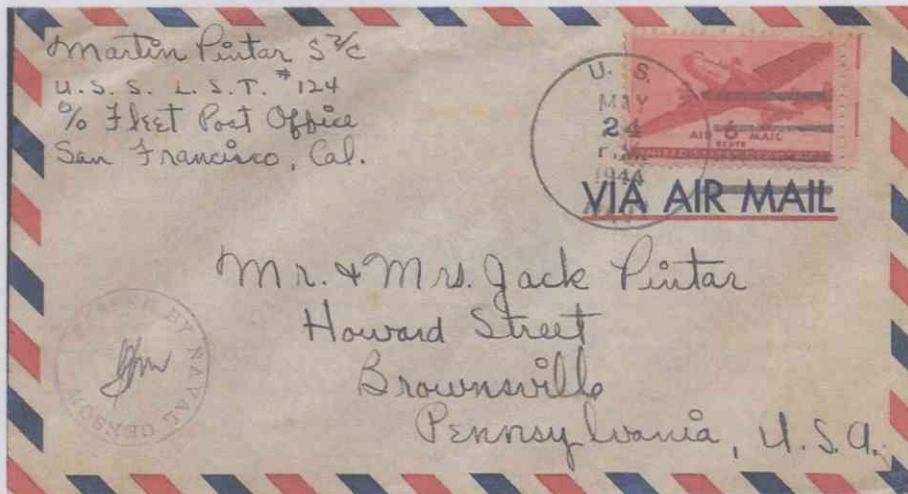 Martin Pintar S 2/c
U.S.S. L.S.T. #124
c/o Fleet Post Office
San Francisco, Cal.
U. S.
MAY
24
P.M.
1944
NAVY
AIR 6 MAIL
CENTS
UNITED STATES OF AMERICA
VIA AIR MAIL
Mr. & Mrs. Jack Pintar
Howard Street
Brownsville
Pennsylvania, U.S.A.
PASSED BY NAVAL CENSOR